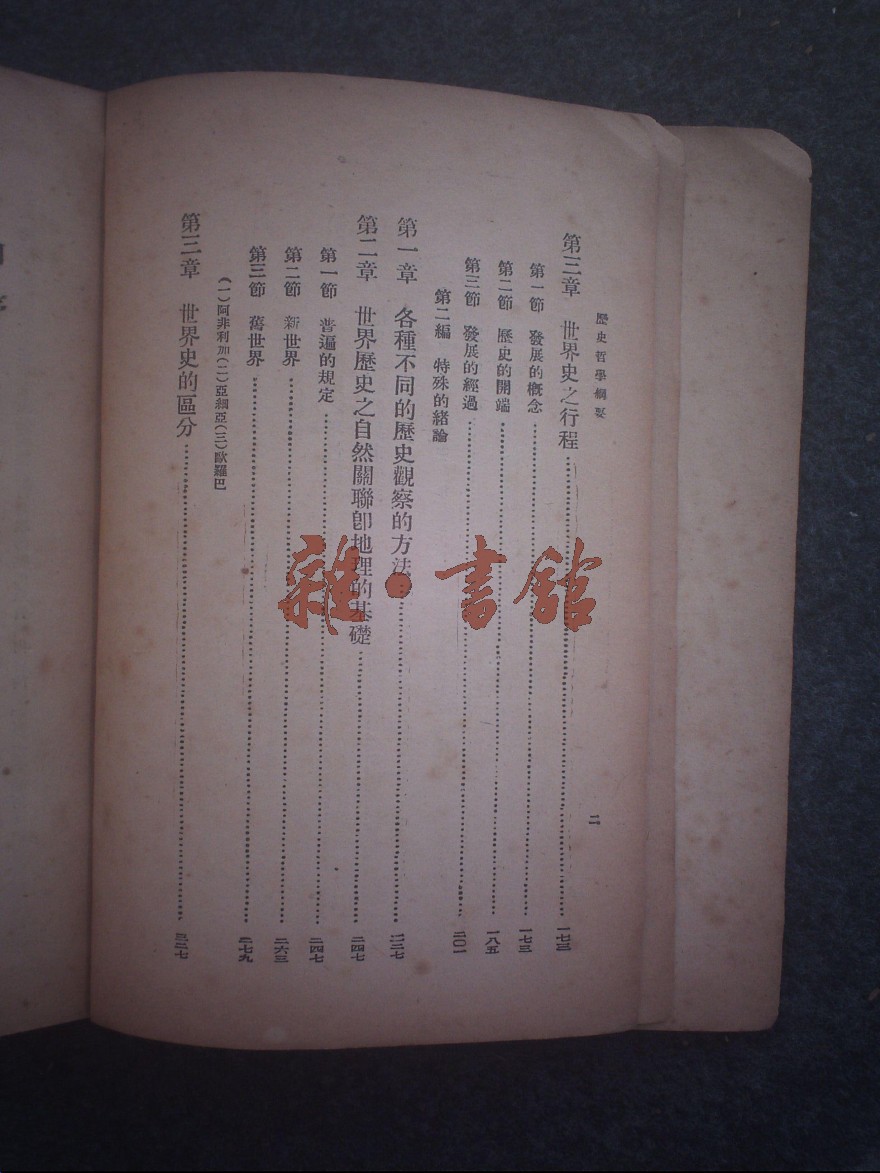 歷史哲學綱要
二
第三章 世界史之行程……一七三
第一節 發展的概念……一七三
第二節 歷史的開端……一八五
第三節 發展的經過……二〇一
第二編 特殊的緒論
第一章 各種不同的歷史觀察的方法……二二七
第二章 世界歷史之自然關聯卽地理的基礎……二四七
第一節 普遍的規定……二四七
第二節 新世界……二六三
第三節 舊世界……二七九
(一)阿非利加(二)亞細亞(三)歐羅巴
第三章 世界史的區分……三二七
雜·書館